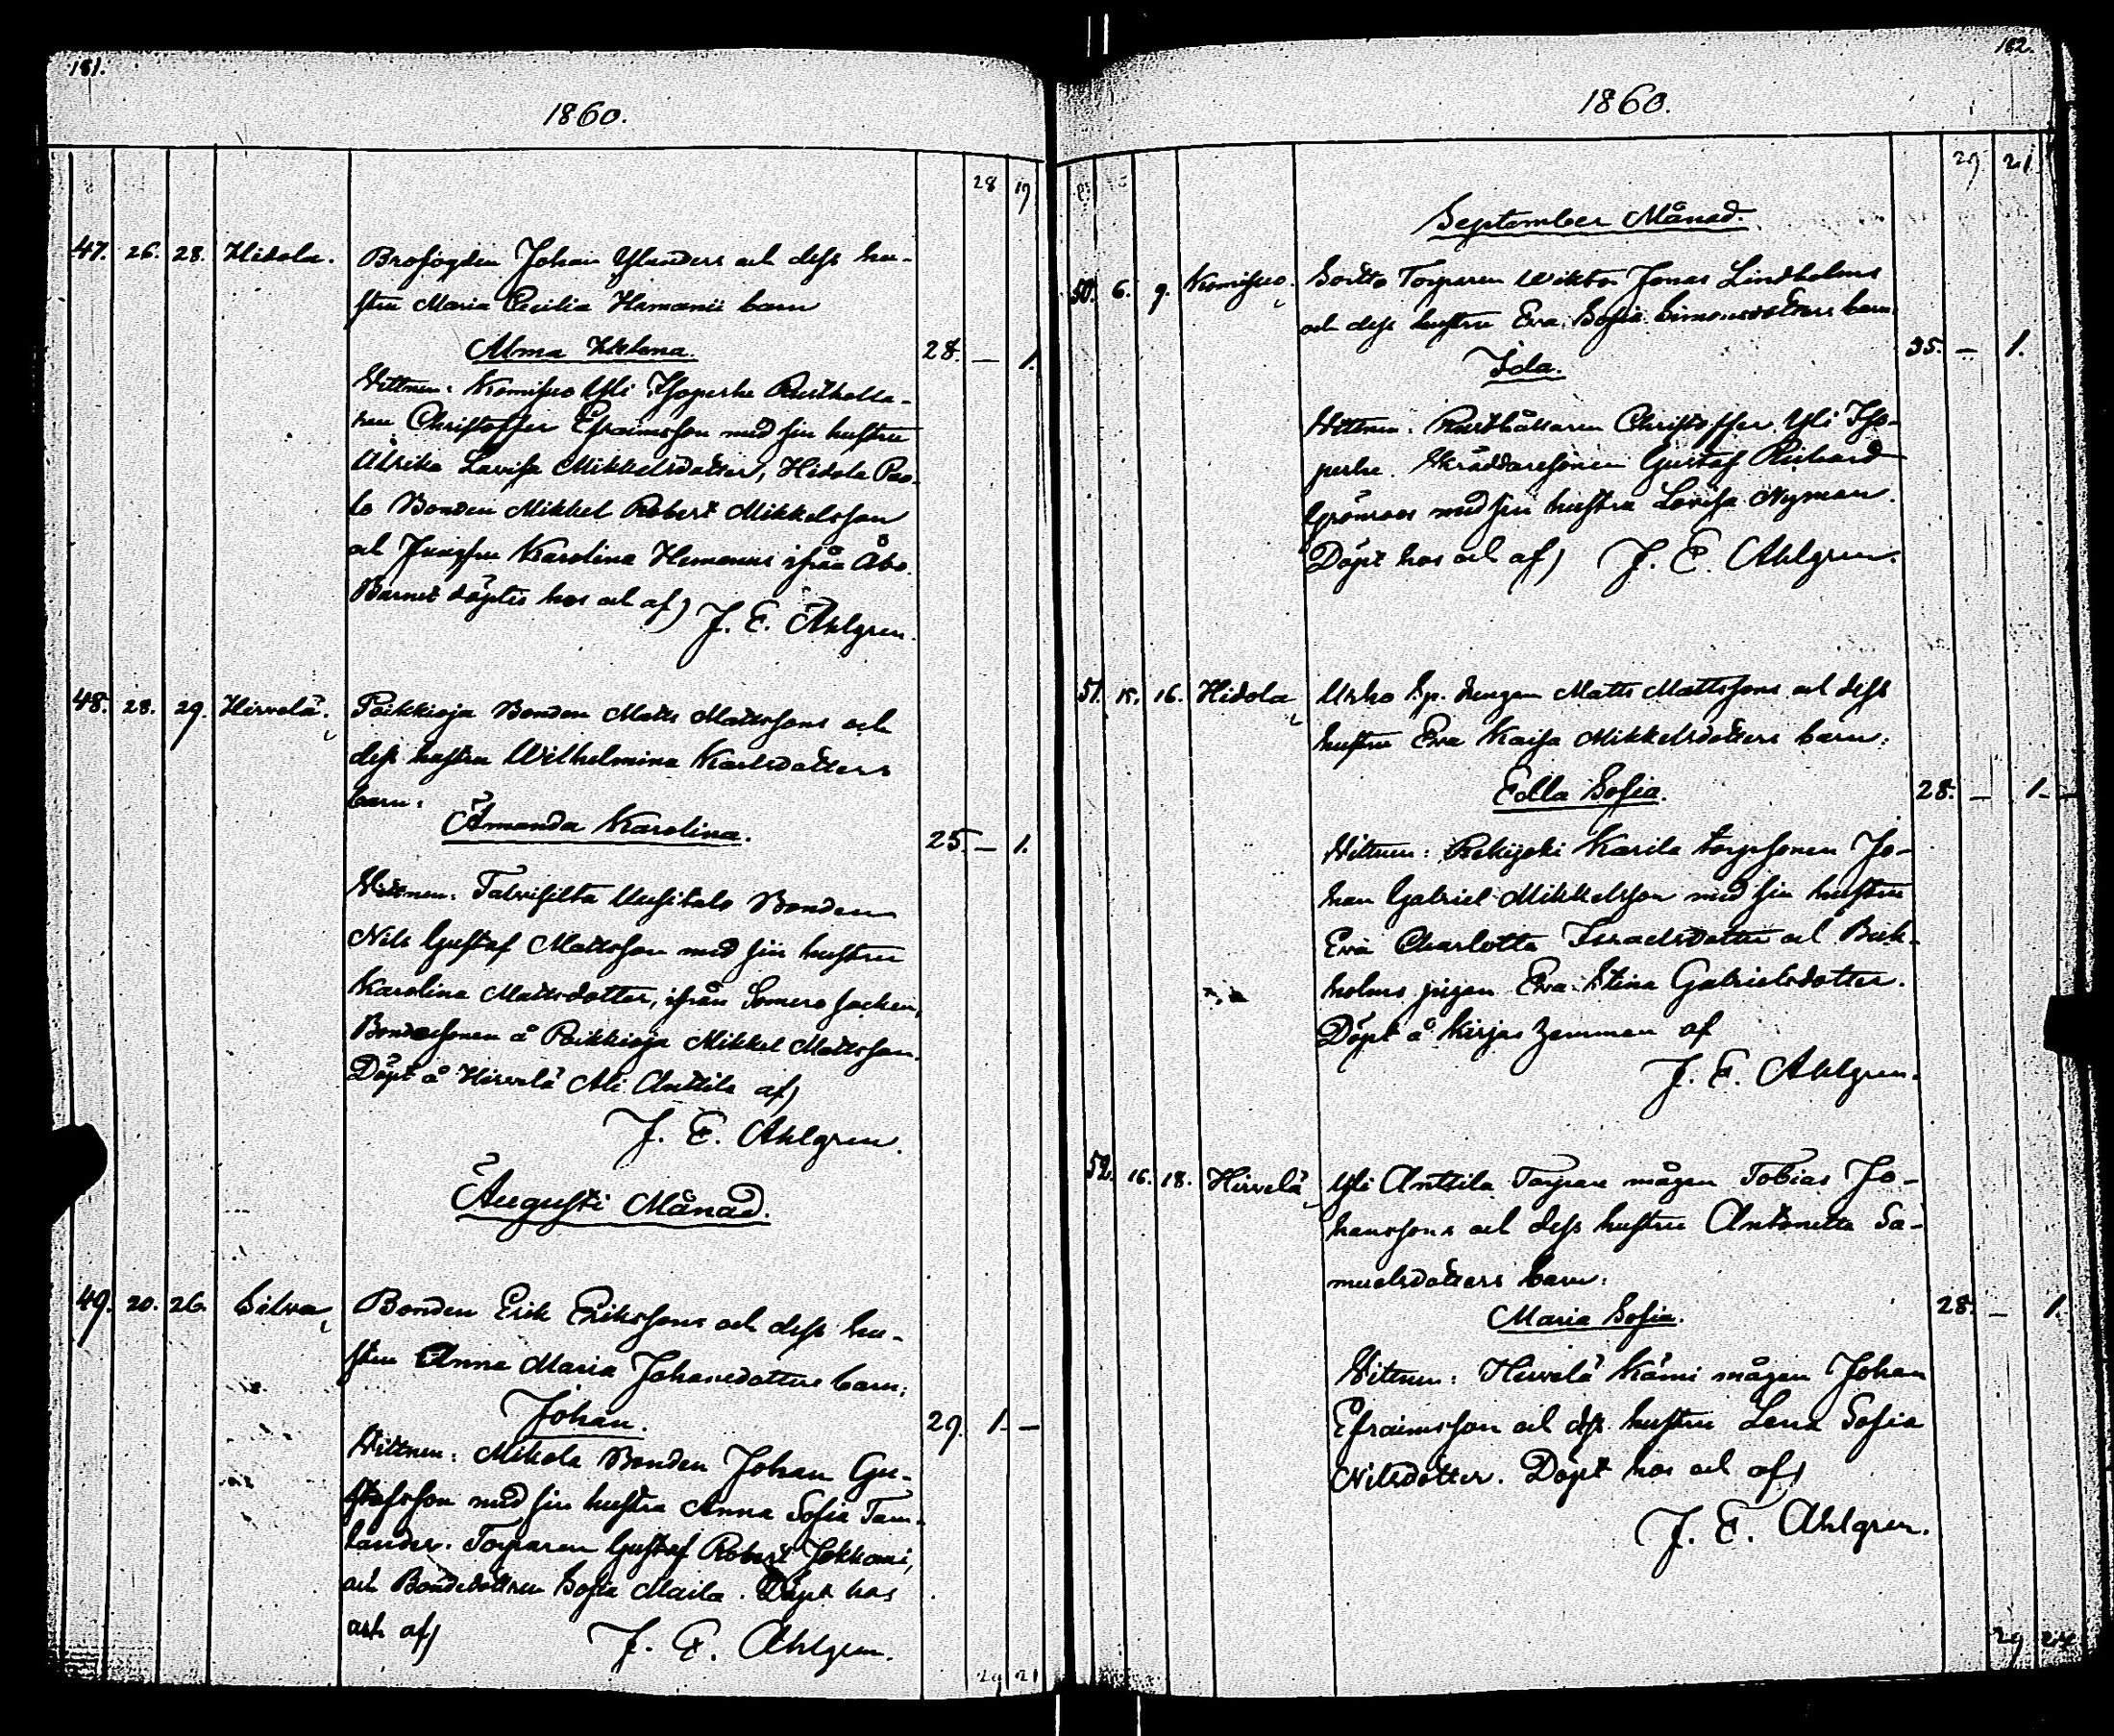 181.
1860.
28 19
47. 26. 28. Hidola. Brofogden Johan Ylanders och dess hu-
stru Maria Cecilia Hemanii barn
Alma Helena. 28. — 1.
Vittnen: Komisuo Yli Isoperhe Rusthålla-
ren Christoffer Efraimsson med sin hustru
Ulrika Lovisa Mikkelsdotter, Hidola Paa-
lo Bonden Mikkel Robert Mikkelsson
och Jungfru Karolina Hemanus ifrån Åbo.
Barnet döptes hos och af) J. E. Ahlgren.
48. 28. 29. Hirvelä. Poikkioja Bonden Matts Mattssons och
dess hustru Wilhelmina Karlsdotters
barn:
Amanda Karolina. 25. — 1.
Vittnen: Talvisilta Uusitalo Bonden
Nils Gustaf Mattsson med sin hustru
Karolina Mattsdotter, ifrån Somero socken,
Bondesonen å Poikkioja Mikkel Mattsson.
Döpt å Hirvelä Ali Anttila af)
J. E. Ahlgren.
Augusti Månad.
49. 20. 26. Salva Bonden Erik Erikssons och dess hu-
stru Anna Maria Johansdotters barn:
Johan. 29. 1. —
Vittnen: Mikola Bonden Johan Gu-
stafsson med sin hustru Anna Sofia Tam-
lander. Torparen Gustaf Robert Jokkami,
och Bondedottren Sofia Maila. Döpt hos
och af) J. E. Ahlgren.
29 21
182.
1860.
29 21.
September Månad.
50. 6. 9. Komisuo. Torparen Wiktor Jonas Lindholms
och dess hustru Eva Sofia Simonsdotters barn
Ida. 35. — 1.
Vittnen: Rusthållaren Christoffer Yli Iso-
perhe. Skräddaresonen Gustaf Richard
Grönroos med sin hustru Lovisa Nyman.
Döpt hos och af) J. E. Ahlgren.
51. 15. 16. Hidola Urho Sp. drengen Matts Mattssons och dess
hustru Eva Kaisa Mikkelsdotters barn:
Edla Sofia. 28. — 1.
Vittnen: Rekijoki Karila torpsonen Jo-
han Gabriel Mikkelsson med sin hustru
Eva Charlotta Israelsdotter och Björk-
holms pigan Eva Stina Gabrielsdotter.
Döpt å Kirjas hemman af
J. E. Ahlgren.
52. 16. 18. Hirvelä Yli Anttila Torpare mågen Tobias Jo-
hanssons och dess hustru Antonetta Sa-
muelsdotters barn:
Maria Sofia. 28. — 1.
Vittnen: Hirvelä Kämi mågen Johan
Efraimsson och dess hustru Lena Sofia
Nilsdotter. Döpt hos och af)
J. E. Ahlgren.
29 24